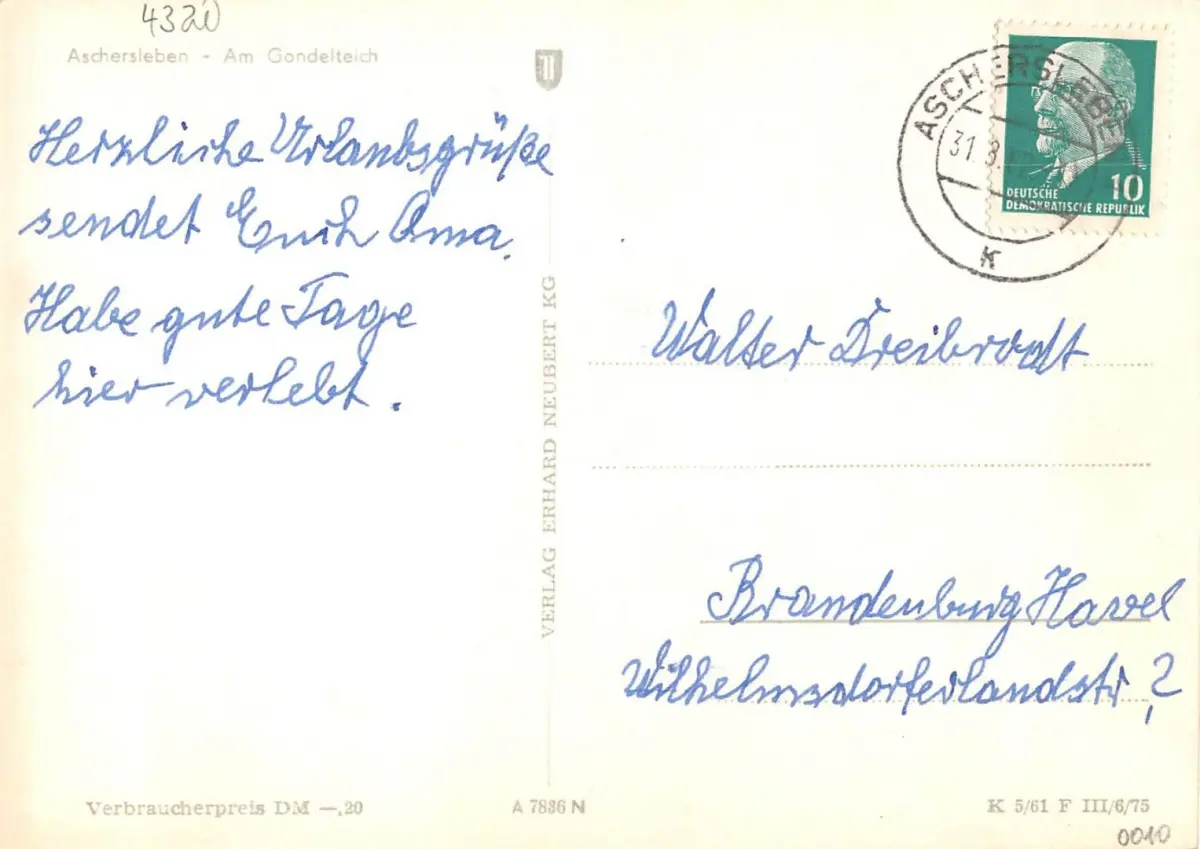 4320
Aschersleben - Am Gondelteich
Herzliche Urlaubsgrüße
sendet Euch Oma.
Habe gute Tage
hier verlebt.
VERLAG ERHARD NEUBERT KG
ASCHERSLEBEN
31.8.
K
10
DEUTSCHE
DEMOKRATISCHE REPUBLIK
Walter Dreibrodt
Brandenburg Havel
Wilhelmsdorferlandstr, 2
Verbraucherpreis DM —,20
A 7886 N
K 5/61 F III/6/75
0010